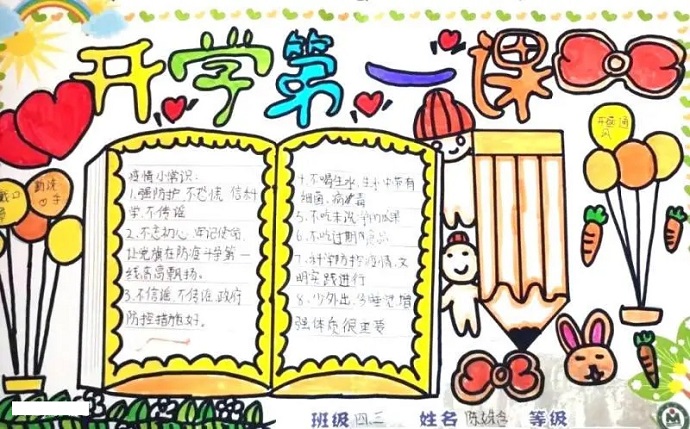 开学第一课
戴口
罩
勤洗
手
开窗通
风
疫情小常识:
1.强防护,不恐慌,信科
学,不传谣
2.不忘初心,牢记使命,
让党旗在防疫斗争第一
线高高飘扬。
3.不信谣,不传谣,政府
防控措施好。
4.不喝生水,生水中带有
细菌,病毒
5.不吃未洗净的瓜果
6.不吃过期的食品
7.科学防控疫情,文
明实践进行
8.少外出,多睡觉,增
强体质很重要
班级 四.三 姓名 陈 等级